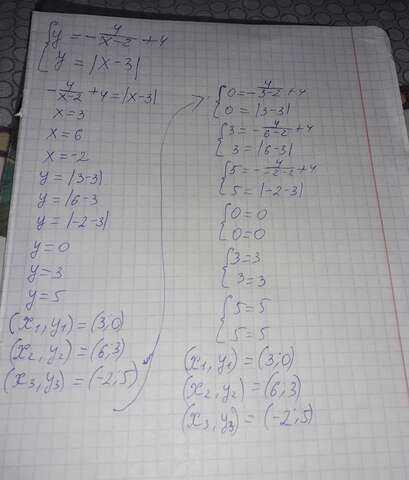 {y = -4/(x-2) + 4
{y = |x-3|
-4/(x-2) + 4 = |x-3|
x = 3
x = 6
x = -2
y = |3-3|
y = |6-3
y = |-2-3|
y = 0
y = 3
y = 5
(x₁, y₁) = (3; 0)
(x₂, y₂) = (6; 3)
(x₃, y₃) = (-2; 5)
{0 = -4/(3-2) + 4
{0 = |3-3|
{3 = -4/(6-2) + 4
{3 = |6-3|
{5 = -4/(-2-2) + 4
{5 = |-2-3|
{0 = 0
{0 = 0
{3 = 3
{3 = 3
{5 = 5
{5 = 5
(x₁, y₁) = (3; 0)
(x₂, y₂) = (6; 3)
(x₃, y₃) = (-2; 5)